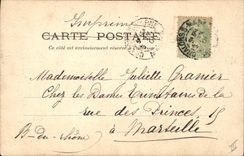 Imprimé
CARTE POSTALE
Ce côté est exclusivement réservé à l'adresse
Mademoiselle Juliette Granier
Chez les Dames Trinitaires de la
rue des Princes 15
à Marseille
B-du-Rhône